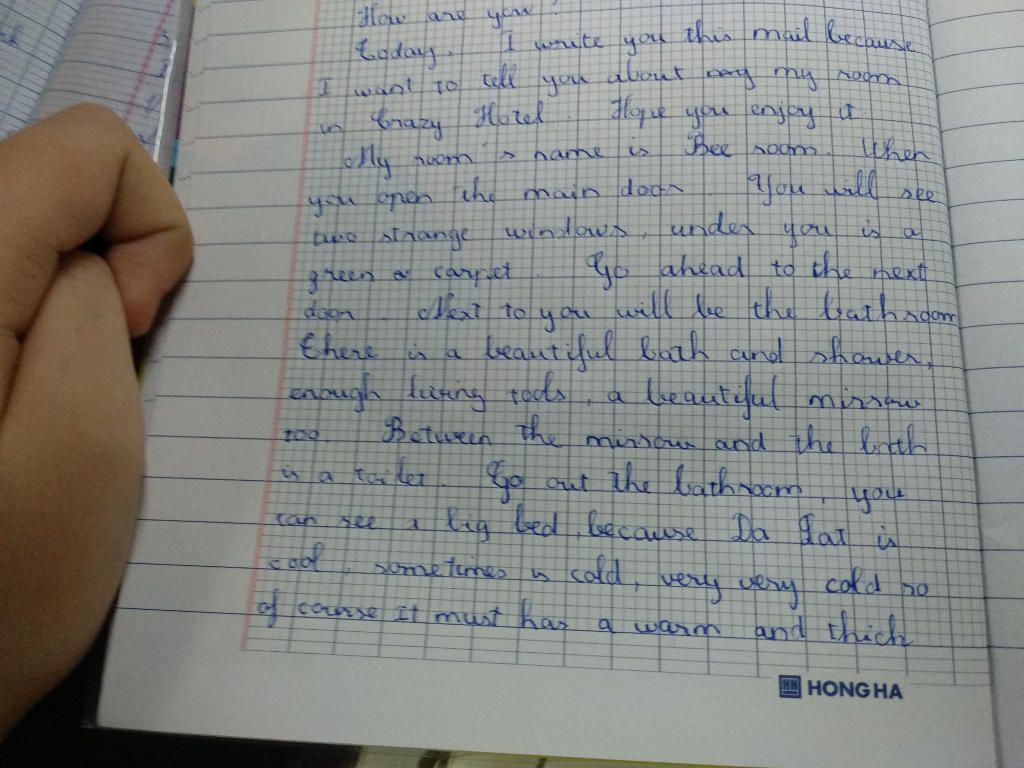 How are you
today. I write you this mail because
I want to tell you about my room
in Crazy Hotel. Hope you enjoy it
My room's name is Bee room. When
you open the main door. You will see
two strange windows, under you is a
green carpet. Go ahead to the next
door. Next to you will be the bathroom
there is a beautiful bath and shower,
enough living tools, a beautiful mirrow
too. Between the mirrow and the bath
is a toilet. Go out the bathroom, you
can see a big bed, because Da Lat is
cool, sometimes is cold, very very cold so
of course it must has a warm and thich
HONG HA